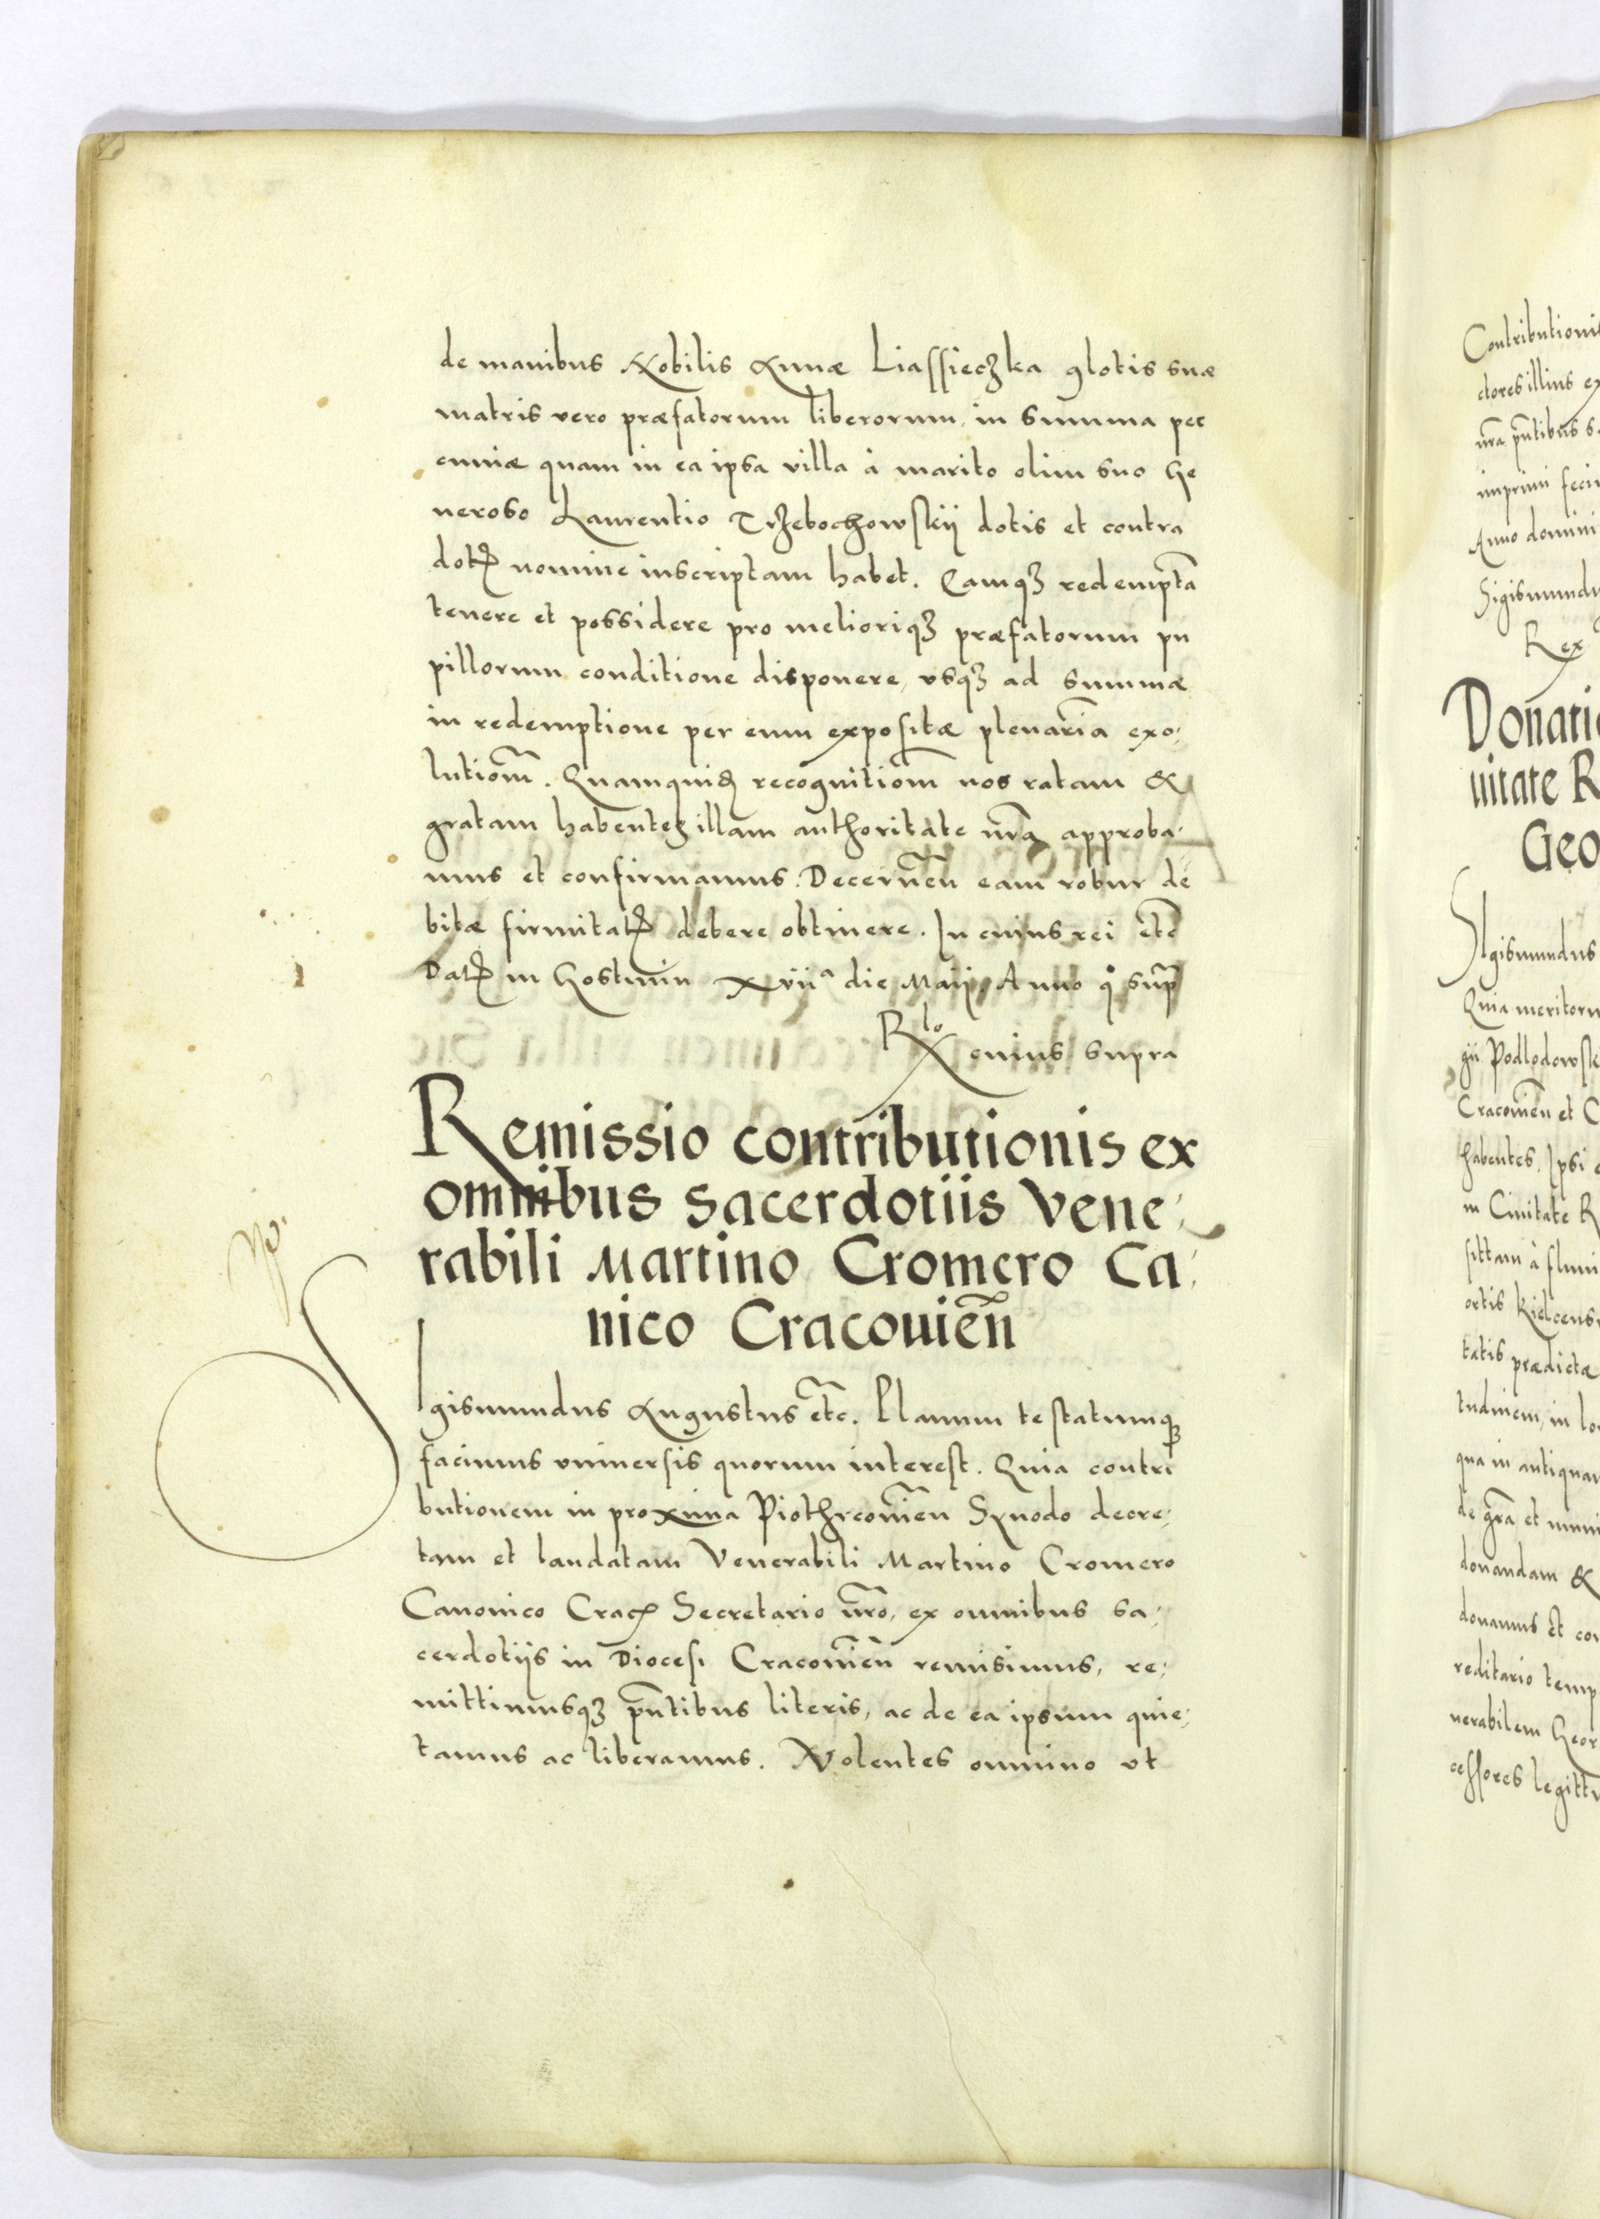 de manibus Nobilis Annæ Liassieczka glotis suæ
matris vero præfatorum liberorum, in summa pec
cuniæ quam in ea ipsa villa à marito olim suo Ge
neroso Laurentio Trzebochowskij dotis et contra
dotꝭ nomine inscriptam habet. Eamqꝫ redemptã
tenere et possidere pro melioriqꝫ præfatorum pu
pillorum conditione disponere, vsqꝫ ad summæ
in redemptione per eum expositæ plenariã exo,
lutionẽ. Quamquidẽ recognitionẽ nos ratam &
gratam habentes illam authoritate nrã approba,
mus et confirmamus. Decernẽn eam robur de
bitæ firmitatꝭ debere obtinere. In cuius rei etc̃
Datꝭ in Gostinin xviiª die Maij, Anno q° supᵃ
Rlo cuius supra
Remissio contributionis ex
omnibus sacerdotiis Vene,
rabili Martino Cromero Ca,
nico Cracouieñ
Sigismundus Augustus etc̃. Planum testatumqꝫ
facimus vniuersis quorum interest. Quia contri
butionem in proxima Piothrcouieñ Synodo decre,
tam et laudatam Venerabili Martino Cromero
Canonico Cracꝭ Secretario nrõ, ex omnibus sa,
cerdotijs in Diocesi Cracouieñ remisimus, re,
mittimusqꝫ pñtibus literis, ac de ea ipsum quie,
tamus ac liberamus. Nolentes omnino vt
Contributioni
ctores illius ex
nrã pñtibus s
imprimi feci
Anno domini
Sigismundu
Rex
Donati
uitate R
Geo
Sigismundus
Quia meritoru
gii Podlodowsk
Cracouieñ et C
habentes. Ipsi
in Ciuitate R
sittam à flumi
ortis Kielcens
tatis prædictæ
tudinem, in lo
qua in antiquar
de grã et muni
donandam &
donamus et con
reditario temp
nerabilem Geor
cessores legitti